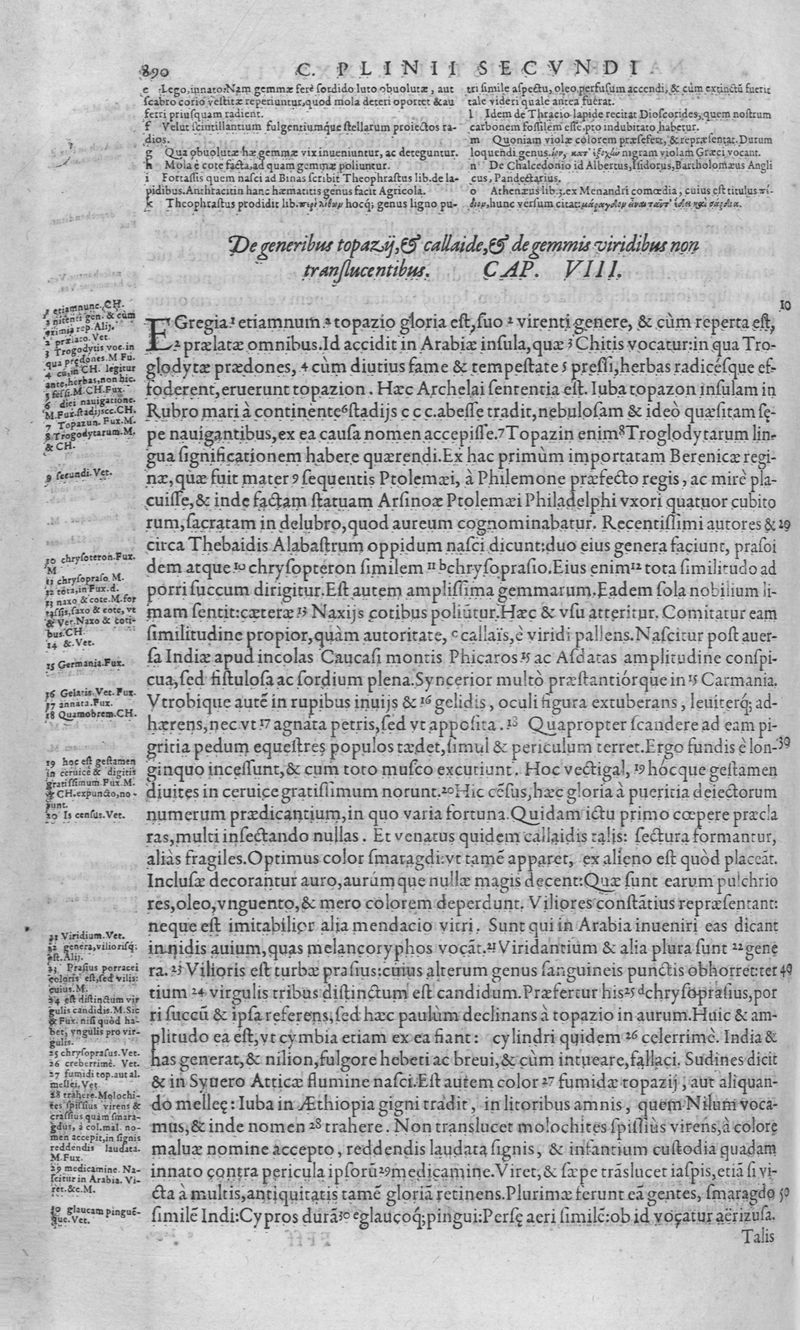 890
C. PLINII SECVNDI
e Lego, innato: Nam gemmæ ferè sordido luto obuolutæ, aut
scabro corio vestitæ reperiuntur, quod mola deteri oportet &au
ferri priusquam radient.
f Velut scintillantium fulgentiumque stellarum proiectos ra-
dios.
g Qua obuolutæ hæ gemmæ vix inueniuntur, ac deteguntur.
h Mola è cote facta, ad quam gemmæ poliuntur.
i Fortassis quem nasci ad Binas scribit Theophrastus lib. de la-
pidibus. Anthracitin hanc hæmatitis genus facit Agricola.
k Theophrastus prodidit lib. περὶ λίθων hocq; genus ligno pu-
tri simile aspectu, oleo perfusum accendi, & cùm extinctũ fuerit
tale videri quale antea fuerat.
l Idem de Thracio lapide recitat Dioscorides, quem nostrum
carbonem fossilem esse, pro indubitato habetur.
m Quoniam violæ colorem præfefert, & repræsentat. Durum
loquendi genus. nigram violam Græci vocant.
n De Chalcedonio id Albertus, Isidorus, Bartholomæus Angli
cus, Pandectarius.
o Athenæus lib. 3. ex Menandri comœdia, cuius est titulus
hunc versum citat:
De generibus topazij, & callaide, & de gemmis viridibus non
translucentibus. CAP. VIII.
10
EGregia¹ etiamnum ² topazio gloria est, suo ² virenti genere, & cùm reperta est,
² prælatæ omnibus. Id accidit in Arabiæ insula, quæ ³ Chitis vocatur: in qua Tro-
glodytæ prædones, 4 cùm diutius fame & tempestate 5 pressi, herbas radicésque ef-
foderent, eruerunt topazion. Hæc Archelai sententia est. Iuba topazon insulam in
Rubro mari à continente⁶ stadijs ccc. abesse tradit, nebulosam & ideò quæsitam sę-
pe nauigantibus, ex ea causa nomen accepisse. ⁷Topazin enim ⁸Troglodytarum lin-
gua significationem habere quærendi. Ex hac primùm importatam Berenicæ regi-
næ, quæ fuit mater 9 sequentis Ptolemæi, à Philemone præfecto regis, ac mirè pla-
cuisse, & inde factam statuam Arsinoæ Ptolemæi Philadelphi vxori quatuor cubito
rum, sacratam in delubro, quod aureum cognominabatur. Recentissimi autores & 20
circa Thebaidis Alabastrum oppidum nasci dicunt: duo eius genera faciunt, prasoi
dem atque ¹⁰ chrysopteron similem ¹¹ ᵇchrysoprasio. Eius enim ¹² tota similitudo ad
porri succum dirigitur. Est autem amplissima gemmarum. Eadem sola nobilium li-
mam sentit: cæteræ ¹³ Naxijs cotibus poliũtur. Hæc & vsu atteritur. Comitatur eam
similitudine propior, quàm autoritate, ᶜ callaïs, è viridi pallens. Nascitur post auer-
sa Indiæ apud incolas Caucasi montis Phicaros ¹⁵ ac Asdatas amplitudine conspi-
cua, sed fistulosa ac sordium plena. Syncerior multò præstantiórque in ¹⁵ Carmania.
Vtrobique autẽ in rupibus inuijs & ¹⁶ gelidis, oculi figura extuberans, leuiterq; ad-
hærens, nec vt ¹⁷ agnata petris, sed vt apposita. ¹⁸ Quapropter scandere ad eam pi-
gritia pedum equestres populos tædet, simul & periculum terret. Ergo fundis è lon- 30
ginquo incessunt, & cum toto musco excutiunt. Hoc vectigal, ¹⁹ hócque gestamen
diuites in ceruice gratissimum norunt. ²⁰Hic cẽsus, hæc gloria à pueritia deiectorum
numerum prædicantium, in quo varia fortuna. Quidam ictu primo cœpere præcla
ras, multi insectando nullas. Et venatus quidem callaidis talis: sectura formantur,
aliàs fragiles. Optimus color smaragdi: vt tamẽ apparet, ex alieno est quòd placeāt.
Inclusæ decorantur auro, aurúmque nullæ magis decent: Quæ sunt earum pulchrio
res, oleo, vnguento, & mero colorem deperdunt. Viliores constātius repræsentant:
neque est imitabilior alia mendacio vitri. Sunt qui in Arabia inueniri eas dicant
in nidis auium, quas melancoryphos vocāt. ²¹ Viridantium & alia plura sunt ²² gene
ra. ²³ Vilioris est turbæ prasius: cuius alterum genus sanguineis punctis obhorret: ter 40
tium ²⁴ virgulis tribus distinctum est candidum. Præfertur his ²⁵ ᵈchrysoprasius, por
ri succũ & ipsa referens, sed hæc paulùm declinans à topazio in aurum. Huic & am-
plitudo ea est, vt cymbia etiam ex ea fiant: cylindri quidem ²⁶ celerrimè. India &
has generat, & nilion, fulgore hebeti ac breui, & cùm intueare, fallaci. Sudines dicit
& in Syuero Atticæ flumine nasci. Est autem color ²⁷ fumidæ topazij, aut aliquan-
do melleę: Iuba in Æthiopia gigni tradit, in litoribus amnis, quem Nilum voca-
mus, & inde nomen ²⁸ trahere. Non translucet molochites spissius virens, à colore
maluæ nomine accepto, reddendis laudata signis, & infantium custodia quadam
innato contra pericula ipsorũ ²⁹medicamine. Viret, & sæpe trāslucet iaspis, etiā si vi-
cta à multis, antiquitatis tamẽ gloriā retinens. Plurimæ ferunt eā gentes, smaragdo 50
similẽ Indi: Cypros durā ³⁰ ᵉglaucoq; pingui: Persę aeri similẽ: ob id vocatur aërizusa.
Talis
1 etiamnunc. CH.
2 nitenti gen. & cùm
primùm rep. Alij.
2 prælato. Vet.
3 Trogodytis voc. in
qua prædones. M Fu.
4 cũ, in CH. legitur
ante, herbas, non hîc.
5 fessi. M. CH. Fux.
6 diei nauigatione.
M. Fux. stadijsce. CH.
7 Topazun. Fux. M.
8 Trogodytarum. M.
& CH.
9 secundi. Vet.
10 chrysoteron. Fux.
M
11 chrysopraso. M.
12 tota, in Fux. d.
13 naxo & cote. M. for
tassis, saxo & cote, vt
& Vet. Naxo & coti-
bus. CH.
14 &. Vet.
15 Germania. Fux.
16 Gelatis. Vet. Fux.
17 annata. Fux.
18 Quamobrem. CH.
19 hoc est gestamen
in ceruice & digitis
gratissimum. Fux. M.
& CH. expuncto, no-
runt.
20 Is census. Vet.
21 Viridium. Vet.
22 genera, viliorisq;
est. Alij.
23 Prasius porracei
coloris est, sed vilis:
cuius. M.
24 est distinctum vir
gulis candidis. M. Sic
& Fux. nisi quòd ha-
bet, vngulis pro vir-
gulis.
25 chrysoprasus. Vet.
26 creberrimè. Vet.
27 fumidi top. aut al.
mellei. Vet
28 trahere. Molochi-
tes spissius virens &
crassius quàm smara-
gdus, à col. mal. no-
men accepit, in signis
reddendis laudata.
M. Fux.
29 medicamine. Na-
scitur in Arabia. Vi-
ret. &c. M.
30 glaucam pinguẽ-
que. Vet.